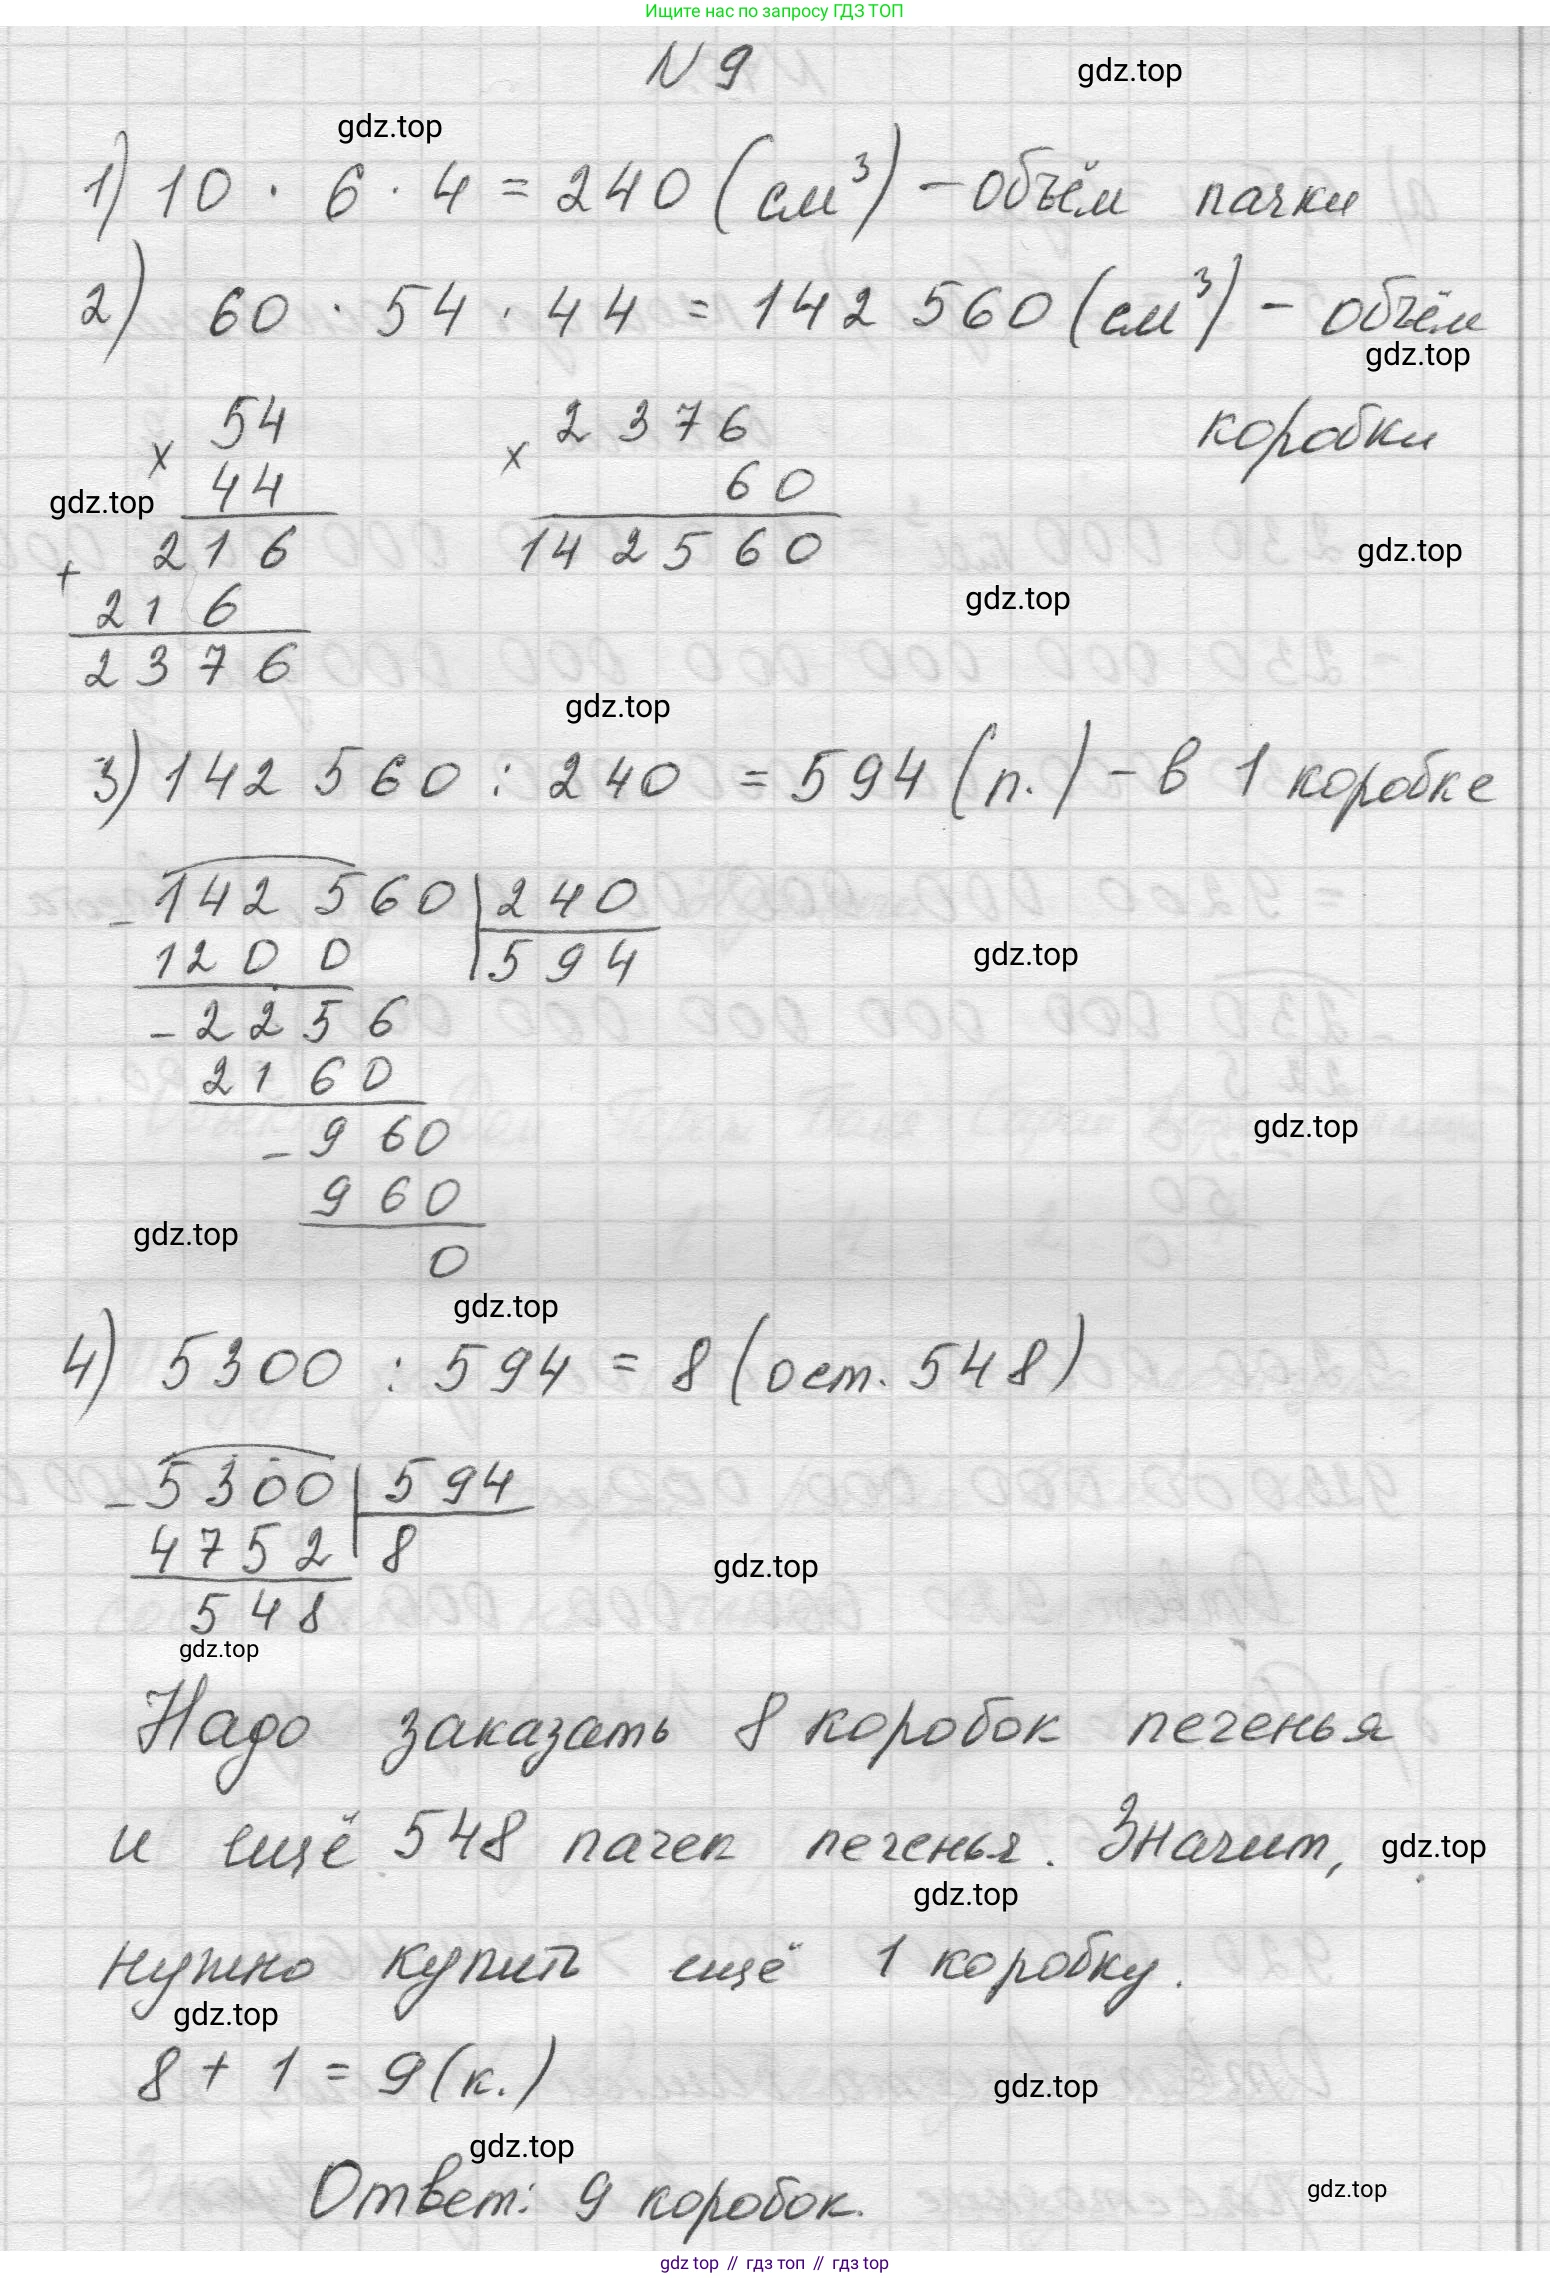 Ищите нас по запросу ГДЗ ТОП
N 9
gdz.top
gdz.top
1) 10 · 6 · 4 = 240 (см³) - объём пачки
2) 60 · 54 · 44 = 142 560 (см³) - объём
gdz.top
коробки
× 54
44
gdz.top
216
+ 216
2376
× 2376
60
142560
gdz.top
gdz.top
gdz.top
3) 142 560 : 240 = 594 (п.) - в 1 коробке
- 142 560 | 240
1200 | 594
gdz.top
- 2256
2160
- 960
gdz.top
960
gdz.top
0
gdz.top
4) 5300 : 594 = 8 (ост. 548)
- 5300 | 594
4752 | 8
gdz.top
548
gdz.top
Надо заказать 8 коробок печенья
и ещё 548 пачек печенья. Значит,
gdz.top
gdz.top
нужно купить ещё 1 коробку.
gdz.top
8 + 1 = 9 (к.)
gdz.top
gdz.top
Ответ: 9 коробок.
gdz.top
gdz top // гдз топ // гдз top